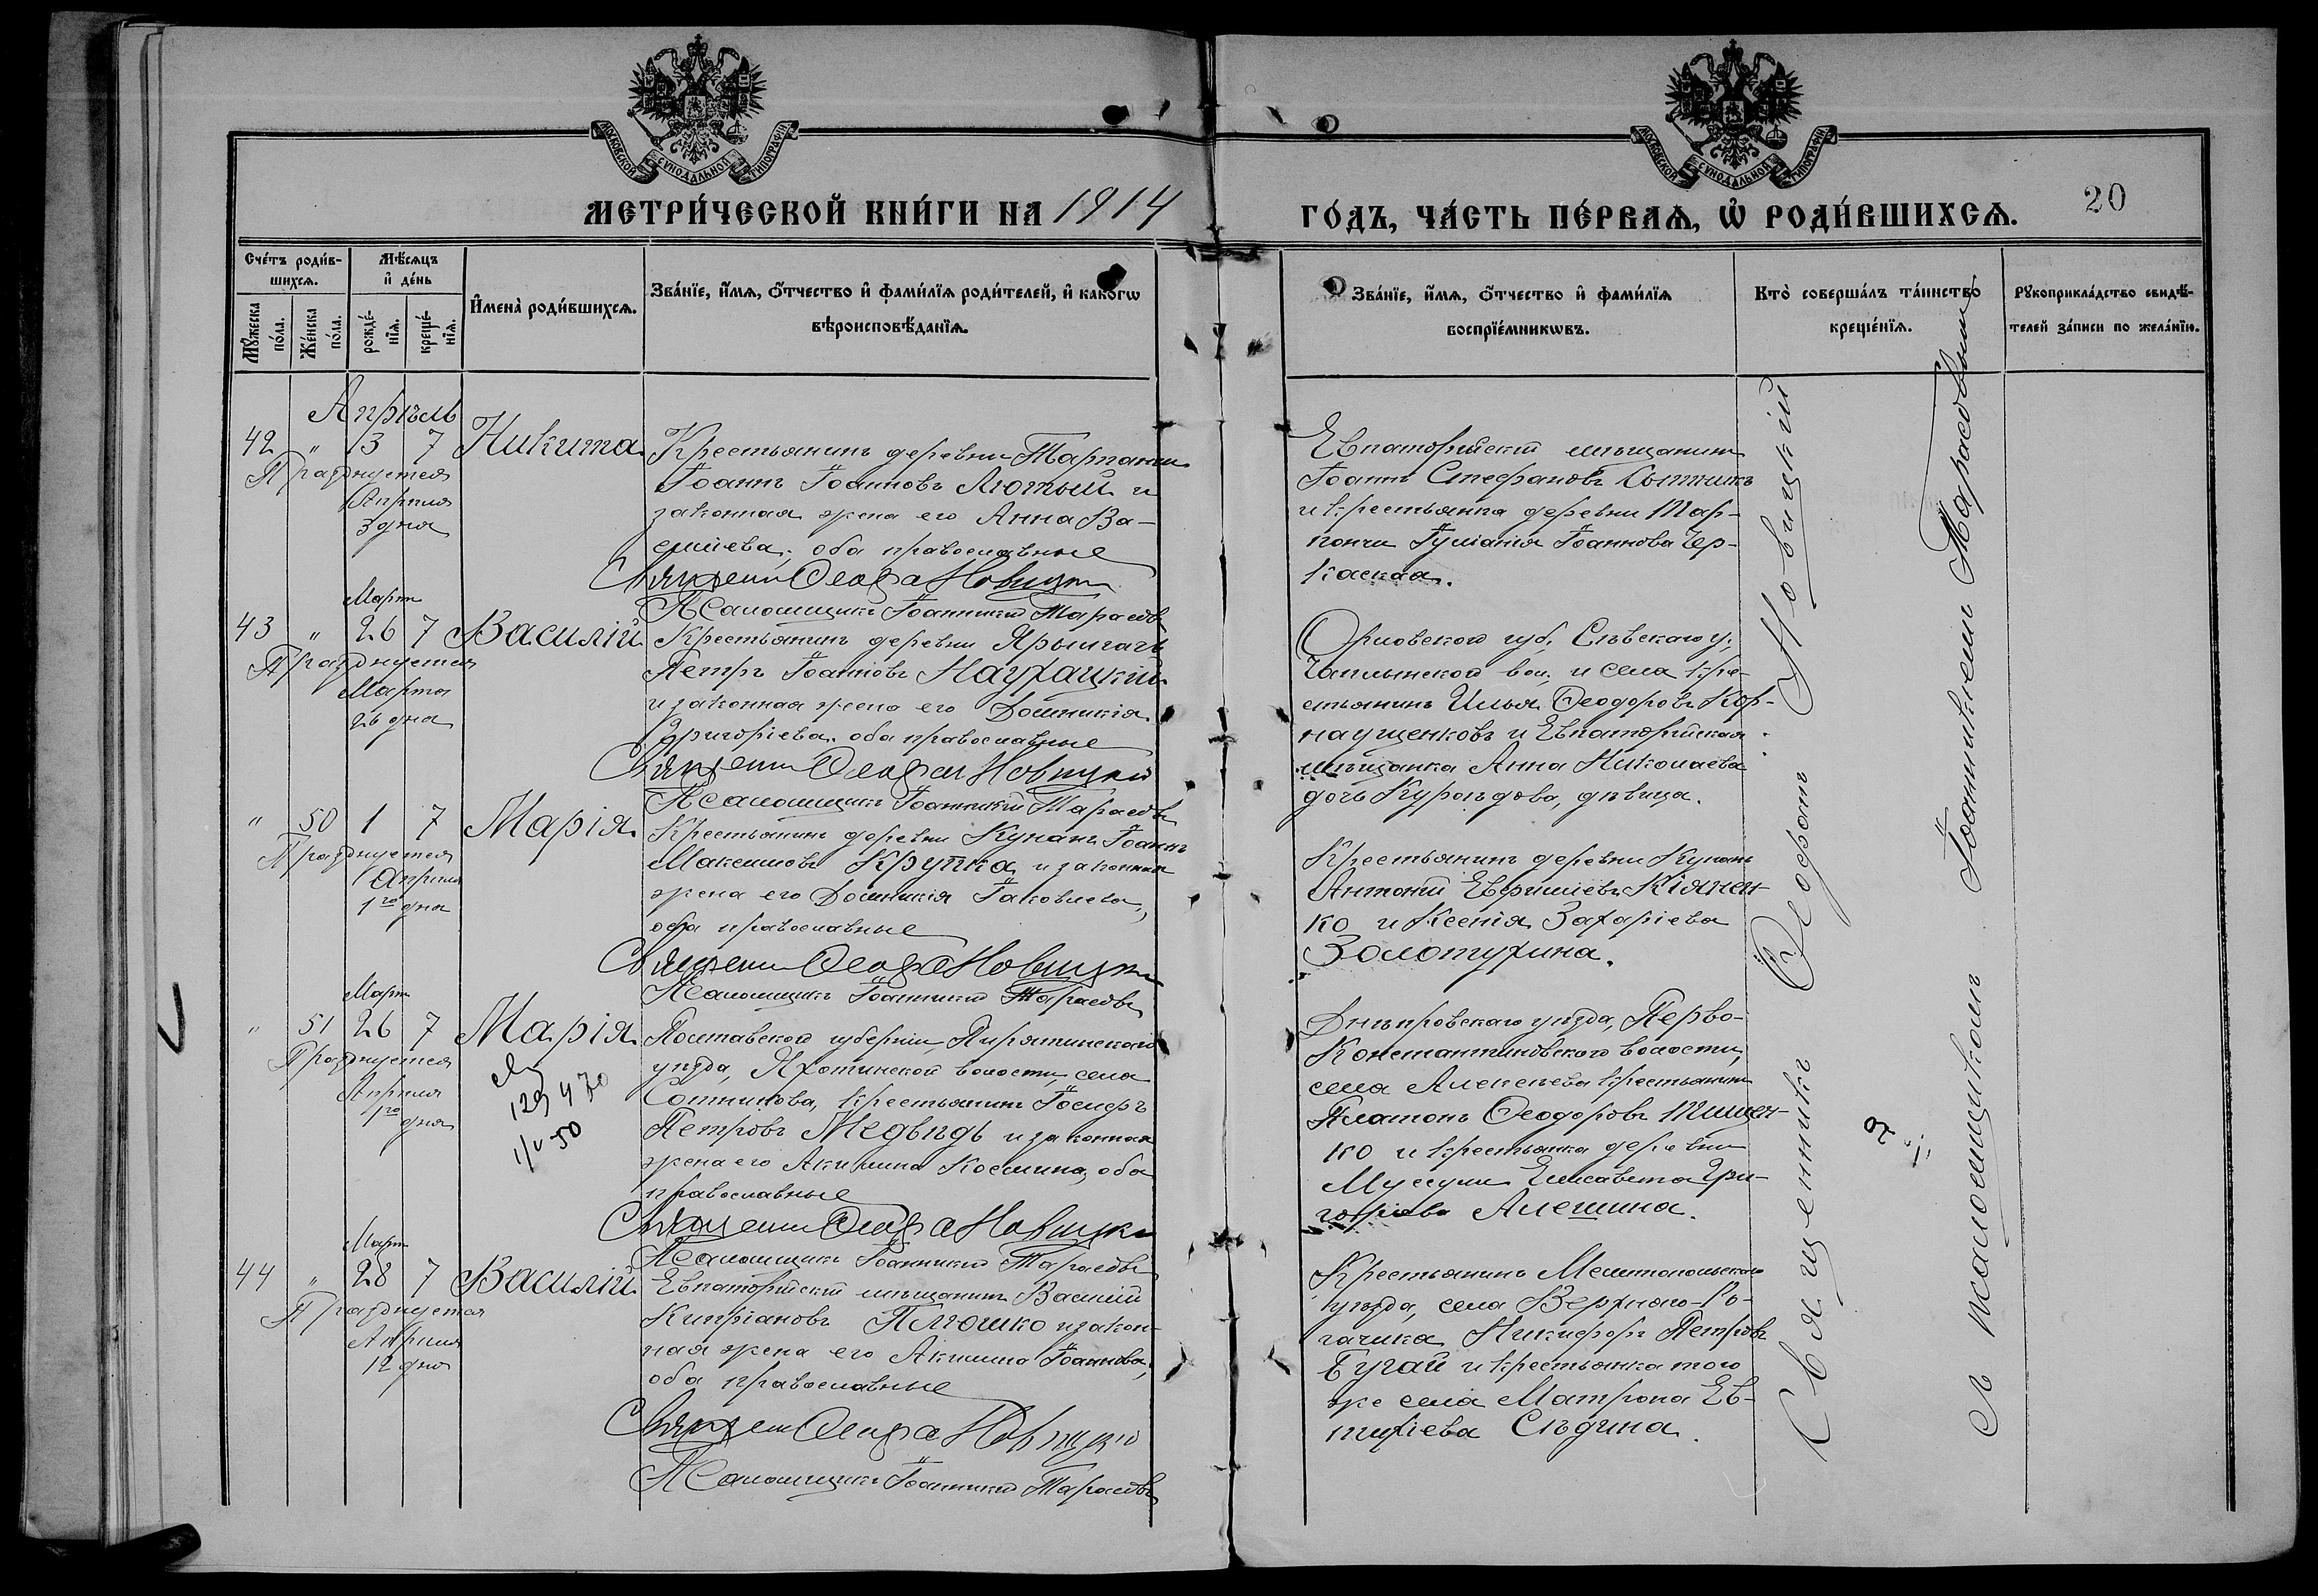 МОСКОВСКОЙ СѴНОДАЛЬНОЙ ТИПОГРАФІИ
МОСКОВСКОЙ СѴНОДАЛЬНОЙ ТИПОГРАФІИ
МЕТРИ́ЧЕСКОЙ КНИ́ГИ НА 1914
ГО́ДЪ, ЧА́СТЬ ПЕ́РВАѦ, Ѡ҆ РОДИ́ВШИХСѦ.
20
Сче́тъ роди́в-
шихсѧ.
Мѣ́сѧцъ
и҆ де́нь
Мꙋ́жеска
по́ла.
Же́нска
по́ла.
рожде́-
нїѧ.
креще́-
нїѧ.
И҆мена̀ роди́вшихсѧ.
Зва́нїе, и҆́мѧ, ѻ҆́тчество и҆ фами́лїѧ роди́телей, и҆ како́гѡ
вѣроисповѣ́данїѧ.
Зва́нїе, и҆́мѧ, ѻ҆́тчество и҆ фами́лїѧ
воспрїе́мникѡвъ.
Кто̀ соверша́лъ та́инство
креще́нїѧ.
Рꙋкоприкла́дство свидѣ́-
телей за́писи по жела́нїю.
Апрѣль
42 " 3 7 Никита
Празднуется
Апрѣля
3 дня
Крестьянинъ деревни Тарпанчи
Іоаннъ Іоанновъ Лютый и
законная жена его Анна Ва-
силіева, оба православные
Священн Ѳеофанъ Новицкій
Псаломщикъ Іоанникій Тарасовъ
Евпаторійскій мѣщанинъ
Іоаннъ Стефановъ Сытникъ
и крестьянка деревни Тар-
панчи Іуліанія Іоаннова Чер-
каская.
Март
43 " 26 7 Василій
Празднуется
Марта
26 дня
Крестьянинъ деревни Ярылгачъ
Петръ Іоанновъ Наухацкій
и законная жена его Домникія
Григоріева, оба православные
Священн Ѳеофан Новицкій
Псаломщикъ Іоанникій Тарасовъ
Орловской губ., Сѣвскаго у.,
Чаплынской вол., и села кре-
стьянинъ Илья Ѳеодоровъ Кор-
наущенковъ и Евпаторійская
мѣщанка Анна Николаева
дочь Куроѣдова, дѣвица.
" 50 1 7 Марія
Празднуется
Апрѣля
1го дня
Крестьянинъ деревни Кунанъ Іоаннъ
Максимовъ Крупка и законная
жена его Домникія Іаковлева,
оба православные
Священн Ѳеофан Новицкій
Псаломщикъ Іоанникій Тарасовъ
Крестьянинъ деревни Кунанъ
Антоній Евфиміевъ Кіянен-
ко и Ксенія Захаріева
Золотухина.
Март
" 51 26 7 Марія
Празднуется
Апрѣля
1го дня
129470
1/v 50
Полтавской губерніи, Пирятинскаго
уѣзда, Яготинской волости, села
Сотникова, крестьянинъ Іосифъ
Петровъ Медвѣдь и законная
жена его Акилина Космина, оба
православные
Священн Ѳеофан Новицкій
Псаломщикъ Іоанникій Тарасовъ
Днѣпровскаго уѣзда, Перво-
Константиновской волости,
села Алексѣева крестьянинъ
Платонъ Ѳеодоровъ Тищен-
ко и крестьянка деревни
Елисавета Гри-
горіева Алешина.
Март
44 " 28 7 Василій
Празднуется
Апрѣля
12 дня
Евпаторійскій мѣщанинъ Василій
Кипріановъ Плюшко и закон-
ная жена его Акилина Іоаннова,
оба православные
Священн Ѳеофан Новицкій
Псаломщикъ Іоанникій Тарасовъ
Крестьянинъ Мелитопольскаго
уѣзда, села Верхняго-Ро-
гачика Никифоръ Петровъ
Бугай и крестьянка того
же села Матрона Ев-
тихіева Слѣдина.
Священникъ Ѳеофанъ Новицкій
съ псаломщикомъ Іоанникіемъ Тарасовымъ